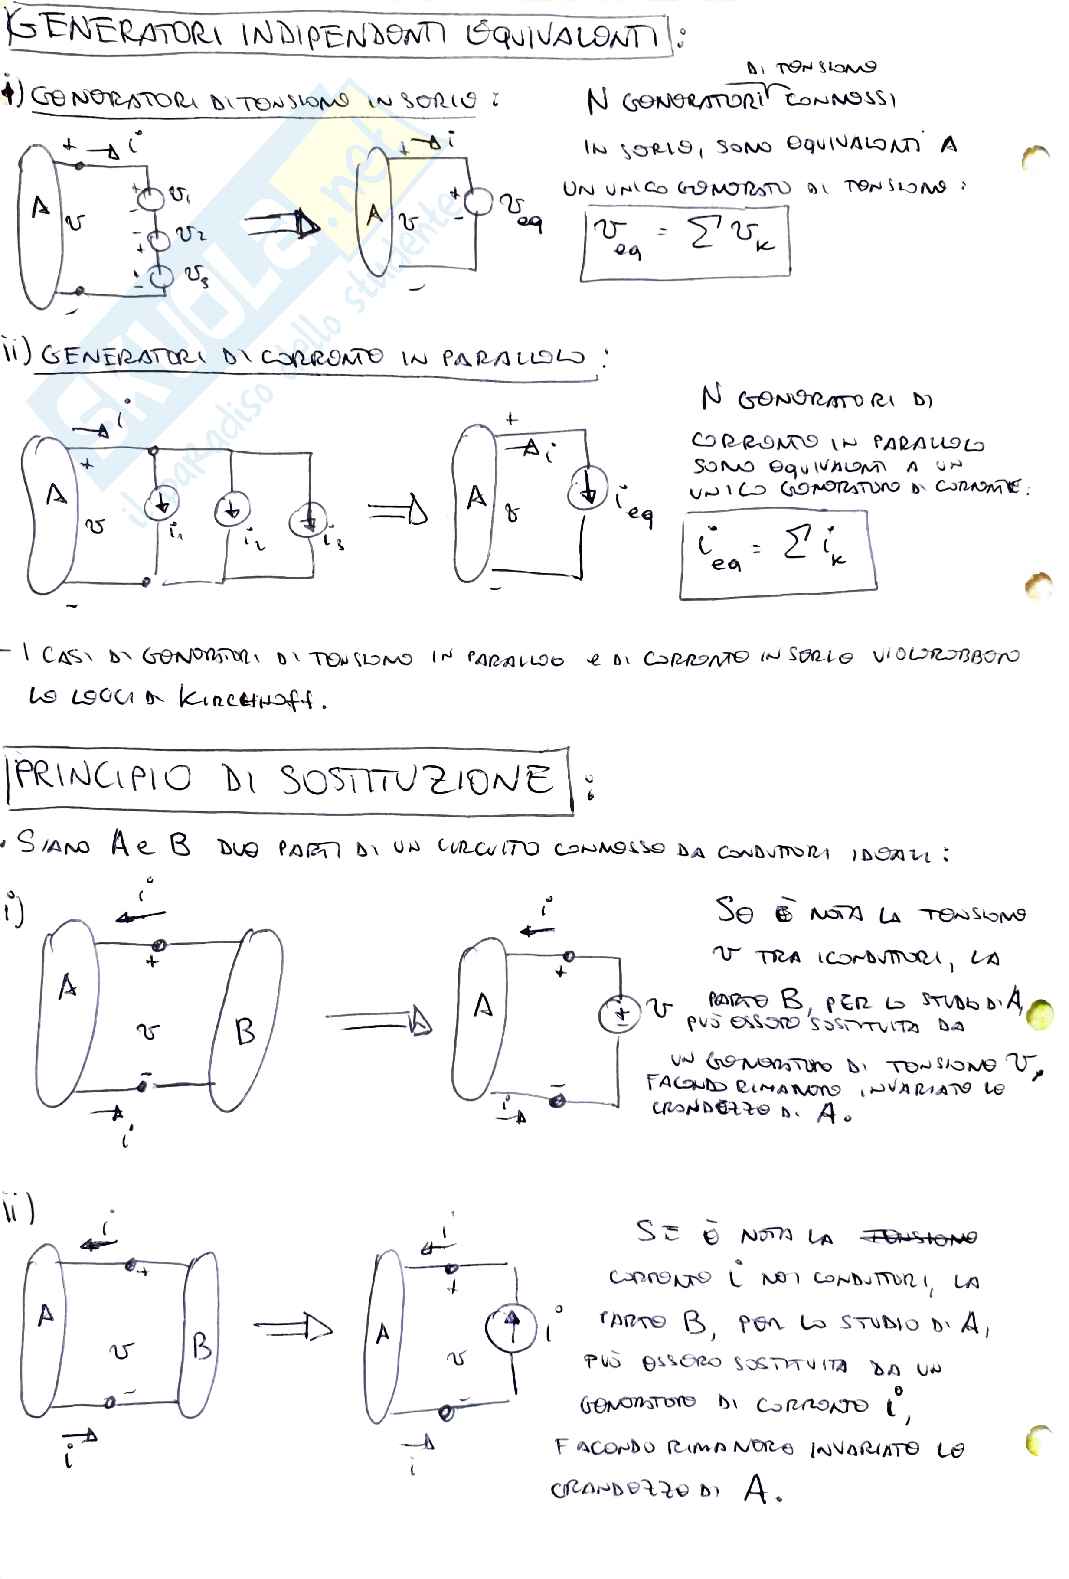 GENERATORI INDIPENDENTI EQUIVALENTI :
i) GENERATORI DI TENSIONE IN SERIE :
DI TENSIONE
N GENERATORI CONNESSI
IN SERIE, SONO EQUIVALENTI A
UN UNICO GENERATO DI TENSIONE :
v_eq = Σ v_k
+ i
A v
+ - v1
- + v2
+ - v3
-
+ i
A v
+ - v_eq
-
ii) GENERATORI DI CORRENTE IN PARALLELO :
N GENERATORI DI
CORRENTE IN PARALLELO
SONO EQUIVALENTI A UN
UNICO GENERATORE DI CORRENTE:
i_eq = Σ i_k
i
+
A v
i1 i2 i3
-
+
i
A v
i_eq
-
- I CASI DI GENERTORI DI TENSIONE IN PARALLEO e DI CORRENTE IN SERIE VIOLEREBBERO
LE LEGGI DI KIRCHHOFF.
PRINCIPIO DI SOSTITUZIONE :
• SIANO A e B DUE PARTI DI UN CIRCUITO CONNESSO DA CONDUTTORI IDEALI :
i)
i
+
A v B
-
i
i
+
A
+ - v
-
i
SE È NOTA LA TENSIONE
v TRA I CONDUTTORI, LA
PARTE B, PER LO STUDIO DI A,
PUÒ ESSERE SOSTITUITA DA
UN GENERATORE DI TENSIONE v,
FACENDO RIMANERE INVARIATE LE
GRANDEZZE DI A.
ii)
i
+
A v B
-
i
i
+
A v i
-
i
SE È NOTA LA TENSIONE
CORRENTE i NEI CONDUTTORI, LA
PARTE B, PER LO STUDIO DI A,
PUÒ ESSERE SOSTITUITA DA UN
GENERATORE DI CORRENTE i,
FACENDO RIMANERE INVARIATE LE
GRANDEZZE DI A.
SKUOLA.net
il paradiso dello studente